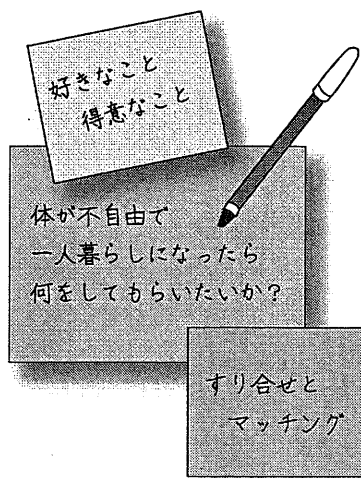 好きなこと
得意なこと
体が不自由で
一人暮らしになったら
何をしてもらいたいか?
すり合せと
マッチング